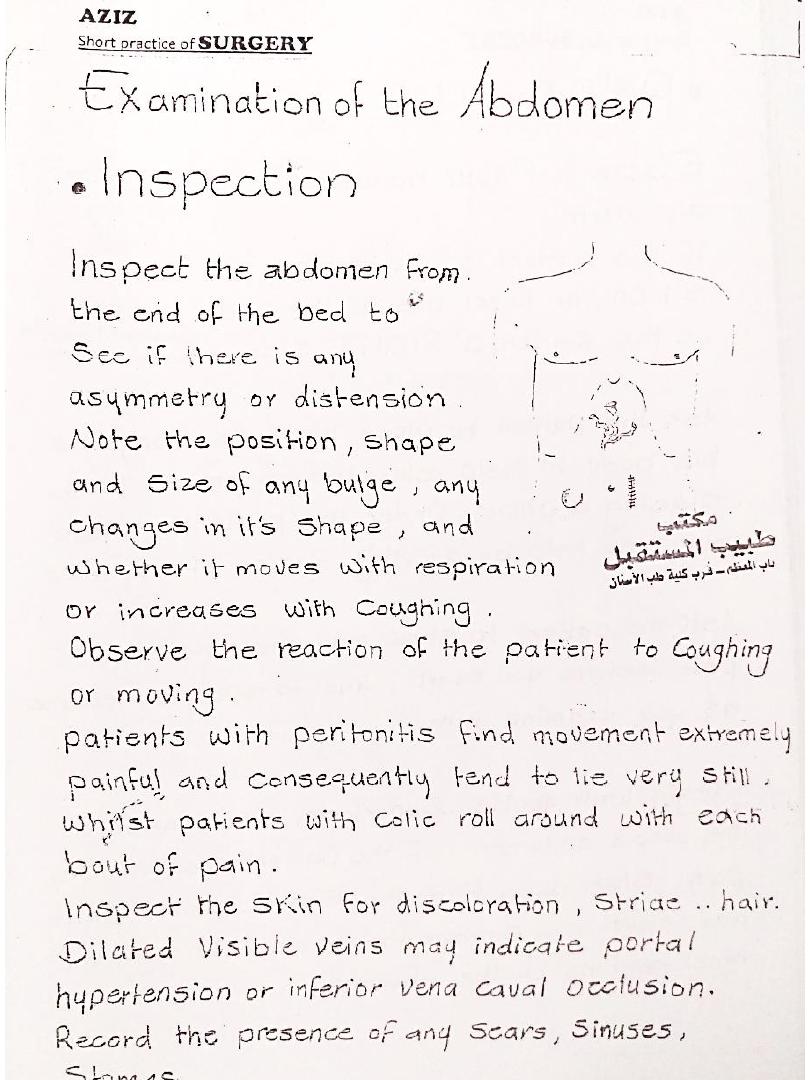 AZIZ
Short practice of SURGERY
Examination of the Abdomen
• Inspection
Inspect the abdomen from.
the end of the bed to
See if there is any
asymmetry or distension.
Note the position, shape
and Size of any bulge, any
changes in it's Shape, and
whether it moves with respiration
or increases with Coughing.
مكتب
طبيب المستقبل
باب المعظم - قرب كلية طب الأسنان
Observe the reaction of the patient to Coughing
or moving.
patients with peritonitis find movement extremely
painful and consequently tend to lie very still.
whilst patients with Colic roll around with each
bout of pain.
Inspect the skin for discoloration, Striae .. hair.
Dilated Visible veins may indicate portal
hypertension or inferior vena caval occlusion.
Record the presence of any Scars, Sinuses,